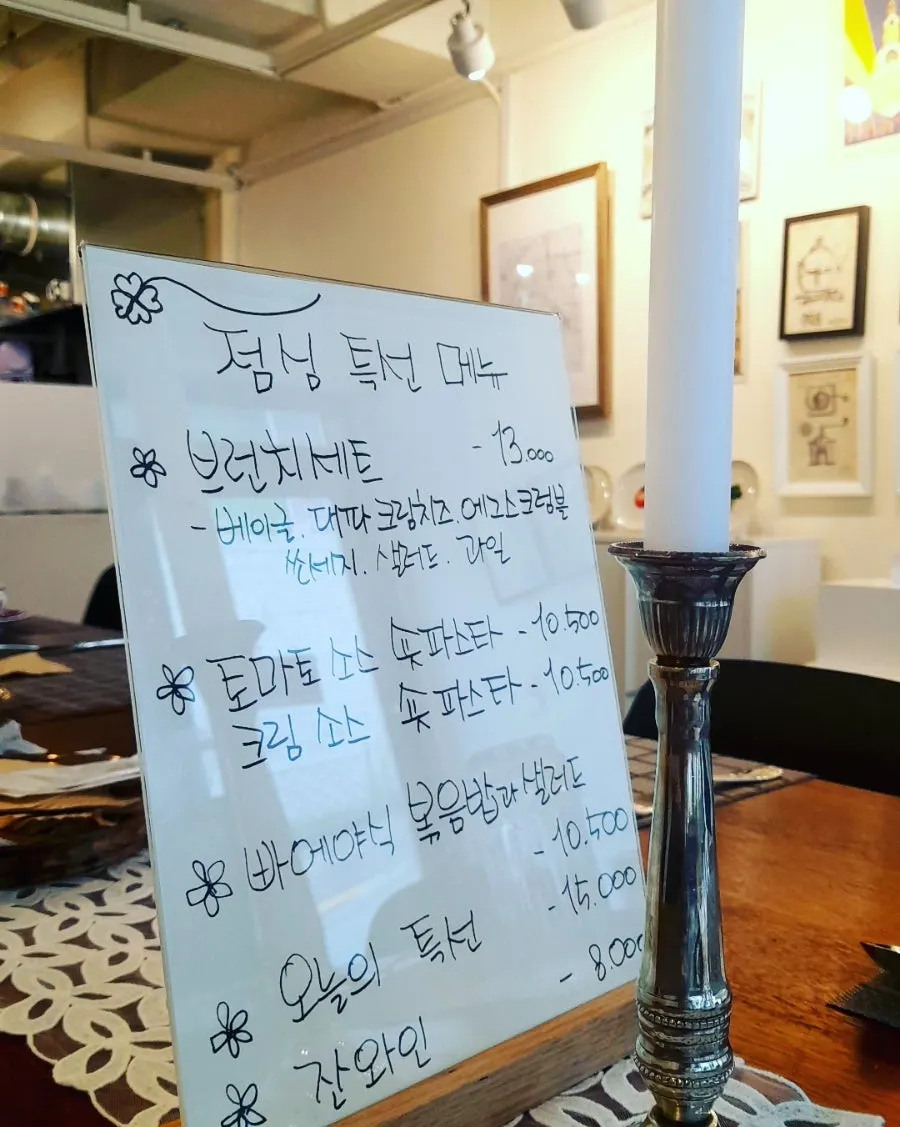 점심 특선 메뉴
브런치세트 - 13.000
- 베이글. 대파크림치즈. 에그스크럼블
쏘세지. 샐러드. 과일
토마토 소스 숏파스타 - 10.500
크림 소스 숏파스타 - 10.500
빠에야식 볶음밥과 샐러드
- 10.500
오늘의 특선 - 15.000
잔와인 - 8.000